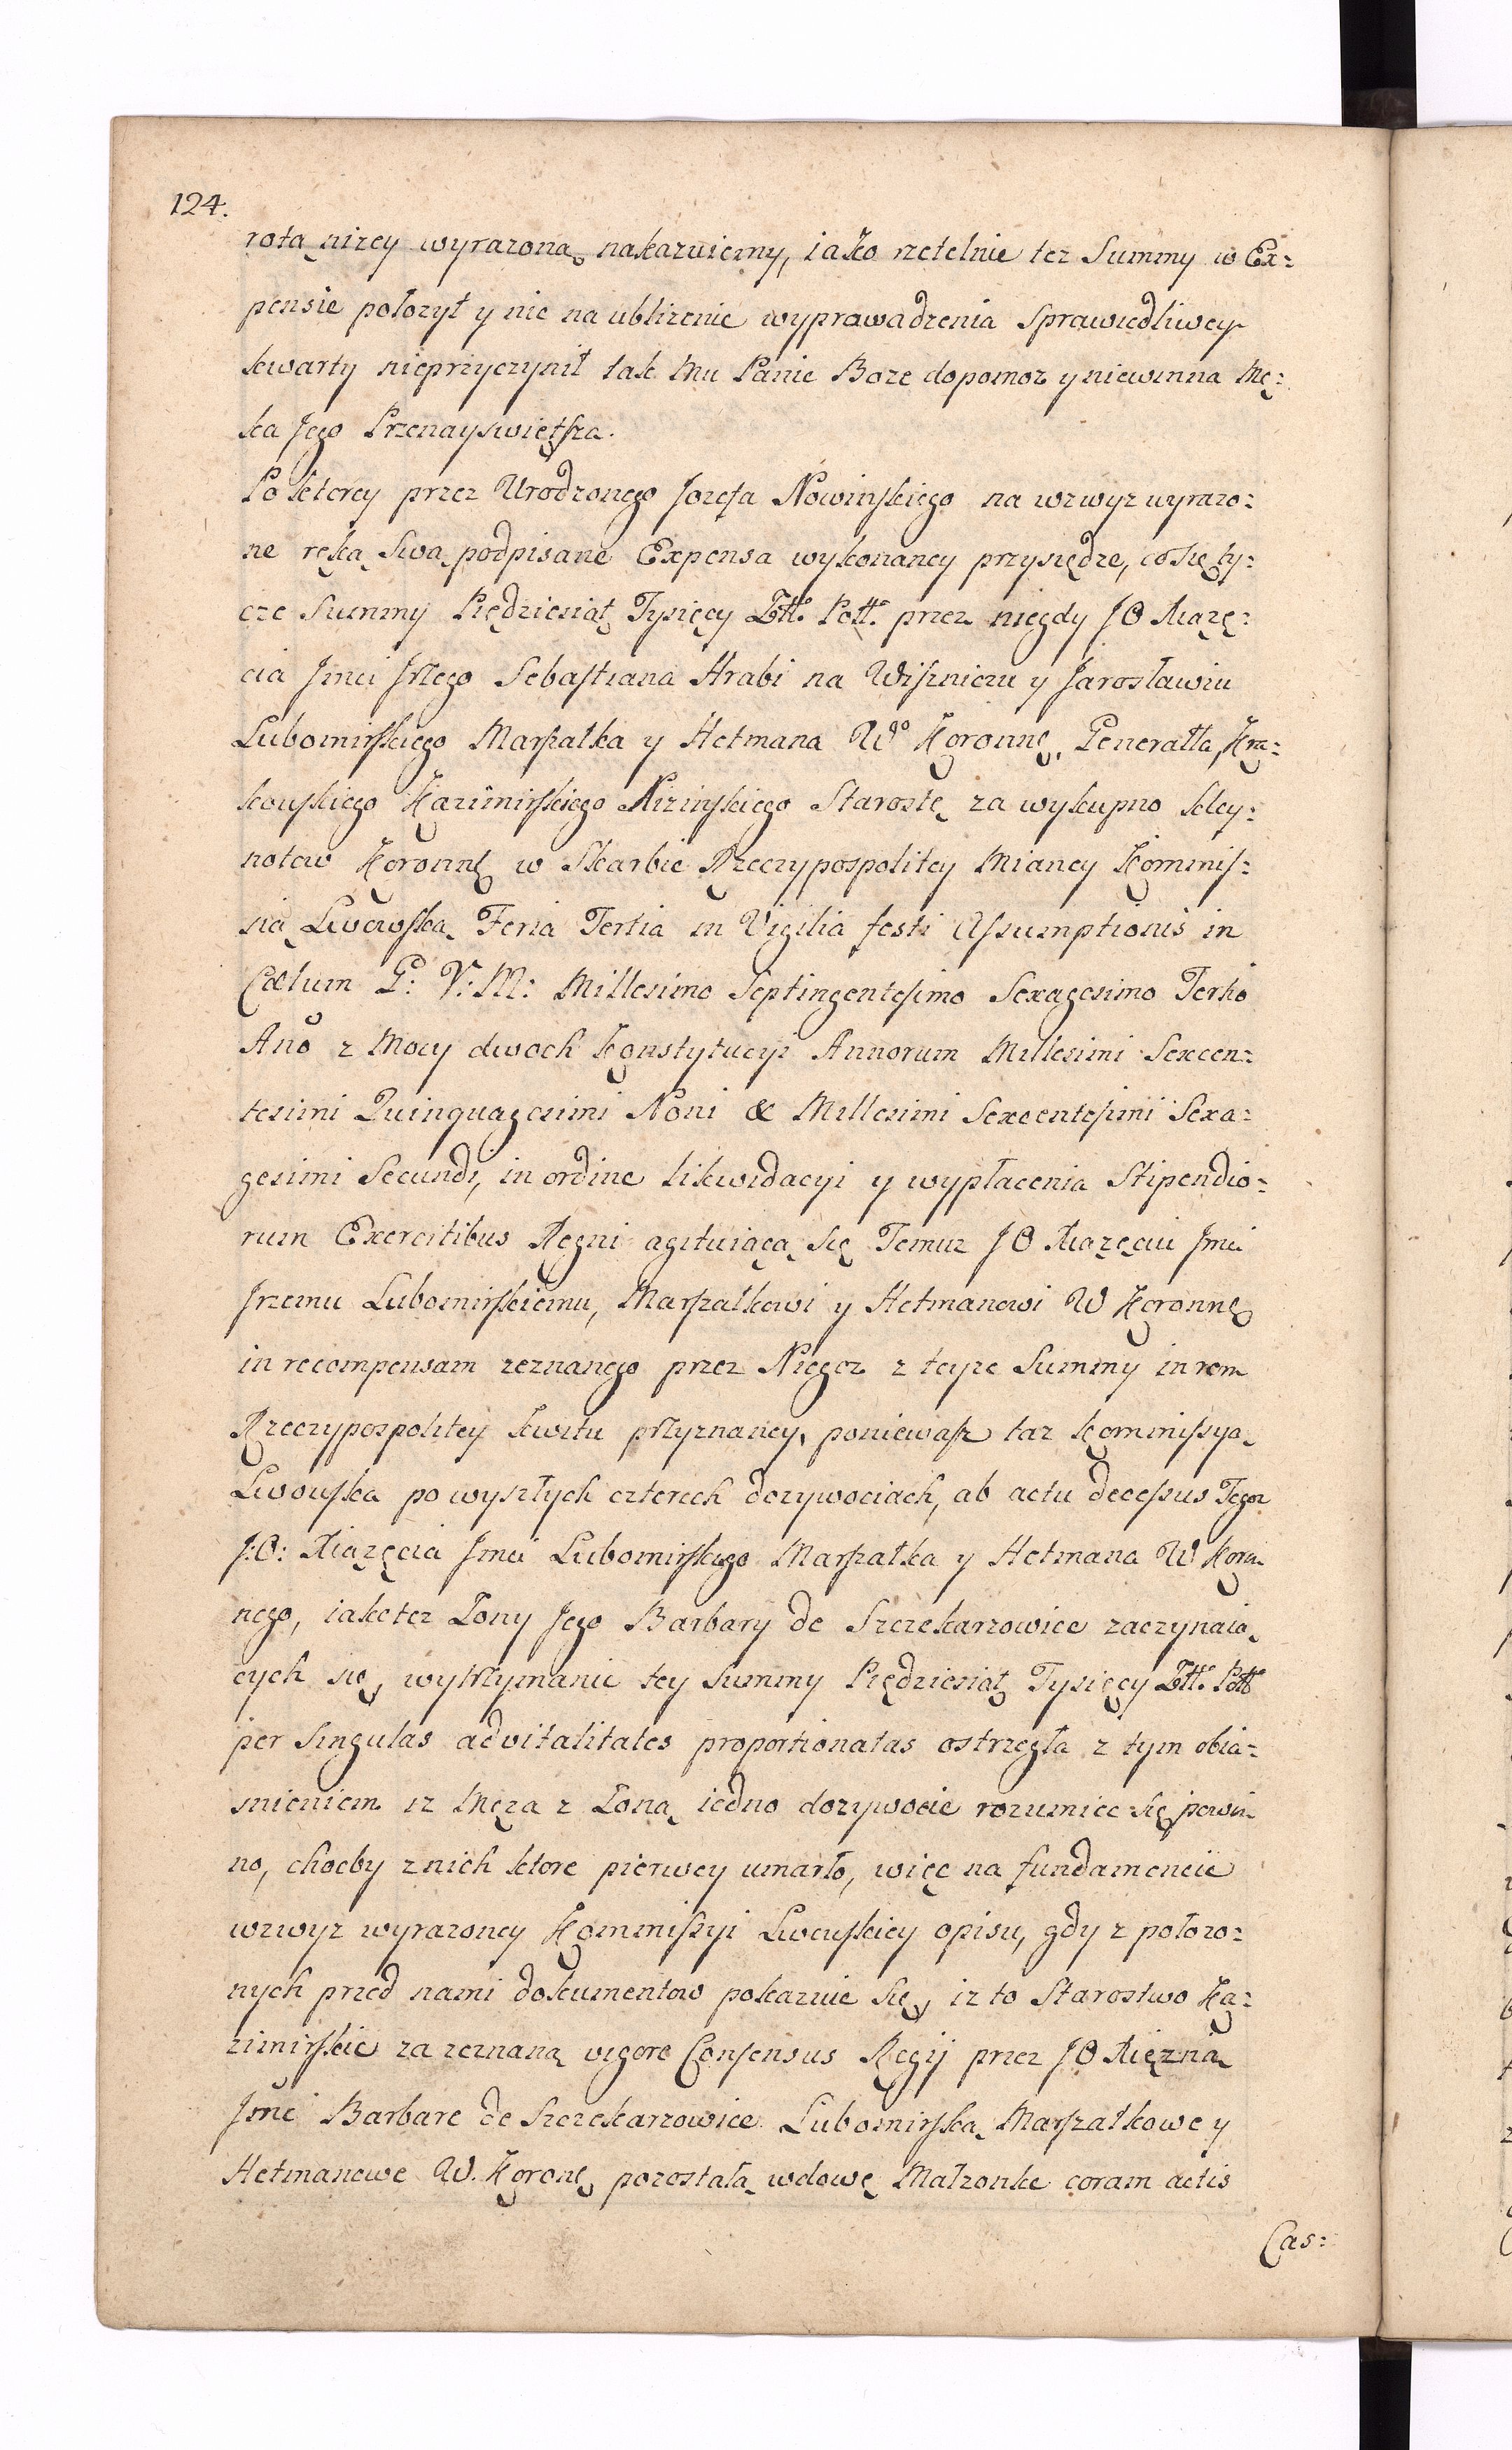 124.
rotą nizey wyrazoną nakazuiemy, iako rzetelnie tez Summy w Ex:
pensie połozył y nic na ublizenie wyprawadzenia Sprawiedliwey
kwarty nieprzyczynił tak Mu Panie Boze dopomoz y niewinna Mę:
ka Jego Przenayswiętsza.
Po ktorey przez Urodzonego Jozefa Nowinskiego na wzwyz wyrazo:
ne ręką Swą podpisane Expensa wykonaney przysiędze, co się ty:
cze Summy Piędziesiąt Tysięcy Złł. Poll. przez niegdy JO Xiązę:
cia Jmci Jrzego Sebastiana Hrabi na Wiszniczu y Jarosławiu
Lubomirskiego Marszałka y Hetmana Wgo Koronng. Generałła, Kra:
kowskiego Kazimirskiego Nizinskiego Starostę za wykupno kley:
notow Koronng w Skarbie Rzeczypospolitey Mianey Kommis:
sią Lwowską Feria Tertia in Vigilia festi Assumptionis in
Cœlum G: V: M: Millesimo Septingentesimo Sexagesimo Tertio
Ano z Mocy dwoch Konstytucyi Annorum Millesimi Sexcen:
tesimi Quinquagesimi Noni & Millesimi Sexcentesimi Sexa:
gesimi Secundi, in ordine likwidacyi y wypłacenia Stipendio:
rum Exercitibus Regni agituiącą się Temuz JO Xiązęciu Jmci
Jrzemu Lubomirskiemu, Marszałkowi y Hetmanowi W Koronng
in recompensam zeznanego przez Niegoz z teyze Summy in rem
Rzeczypospolitey kwitu przyznaney, poniewasz taz Kommissya
Lwowska po wyszłych czterech dozywociach, ab actu decessus Tegoz
J:O: Xiązęcia Jmci Lubomirskiego Marszałka y Hetmana W Koron
nego, iako tez Zony Jego Barbary de Szczekarzowice zaczynaią
cych się, wytrzymanie tey Summy Piędziesiąt Tysięcy Złł. Poll
per Singulas advitalitates proportionatas ostrzegła z tym obia:
snieniem iz Męza z Zoną iedno dozywocie rozumiec się powin
no, choćby z nich ktore pierwey umarło, więc na fundamencie
wzwyz wyrazoney Kommissyi Lwowskiey opisu, gdy z połozo:
nych przed nami dokumentow pokazuie się, iz to Starostwo Ka:
zimirskie za zeznaną vigore Consensus Regij przez JO Xięzną
Jmć Barbarę de Szczekarzowice Lubomirską Marszałkowę y
Hetmanowę W. Korong pozostałą wdowę Małzonkę coram actis
Cas: